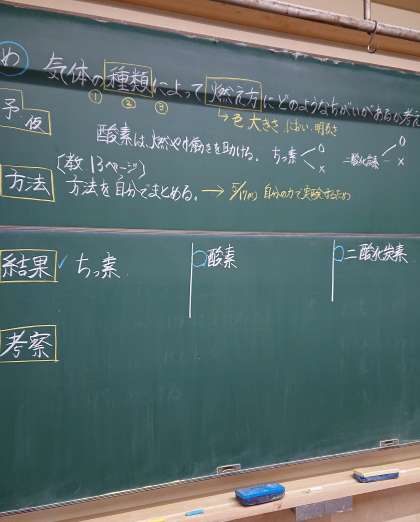 め 気体の種類によって燃え方にどのようなちがいがあるか考え
① ② ③
予
↳色 大きさ におい 明るさ
酸素は、燃やす働きを助ける。 ちっ素 ○ × 二酸化炭素 ○ ×
(教 13ページ)
方法 方法を自分でまとめる。 → 5/17(月) 自分の力で実験するため
結果 ✓ ちっ素 ○酸素 ○二酸化炭素
考察